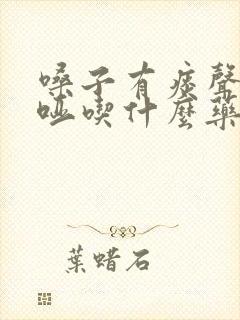 嗓子有痰聲
啞喫什麼藥
葉蜡石